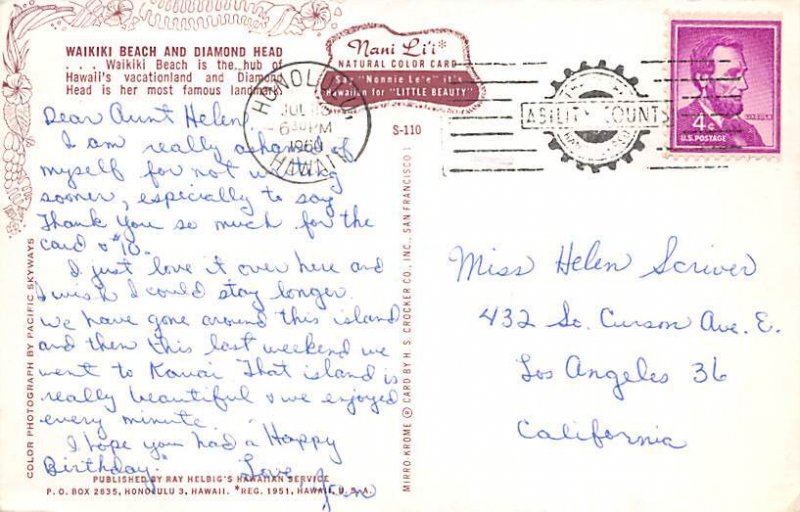 WAIKIKI BEACH AND DIAMOND HEAD
. . . Waikiki Beach is the hub of
Hawaii's vacationland and Diamond
Head is her most famous landmark.
Nani Li'i*
NATURAL COLOR CARD
Say "Nonnie Le'e" it's
Hawaiian for "LITTLE BEAUTY"
S-110
HONOLULU
JUL
PM
HAWAII
ABILITY COUNTS
4¢
U.S. POSTAGE
Dear Aunt Helen,
I am really ashamed of
myself for not writing
sooner, especially to say
Thank you so much for the
card & $10.
I just love it over here and
I wish I could stay longer.
We have gone around this island
and then this last weekend we
went to Kauai. That island is
really beautiful & we enjoyed
every minute.
I hope you had a Happy
Birthday.
Love,
Miss Helen Scriver
432 So. Curson Ave. E.
Los Angeles 36
California
PUBLISHED BY RAY HELBIG'S HAWAIIAN SERVICE
P. O. BOX 2835, HONOLULU 3, HAWAII. *REG. 1951, HAWAII, U.S.A.
COLOR PHOTOGRAPH BY PACIFIC SKYWAYS
MIRRO-KROME ® CARD BY H. S. CROCKER CO., INC., SAN FRANCISCO 1